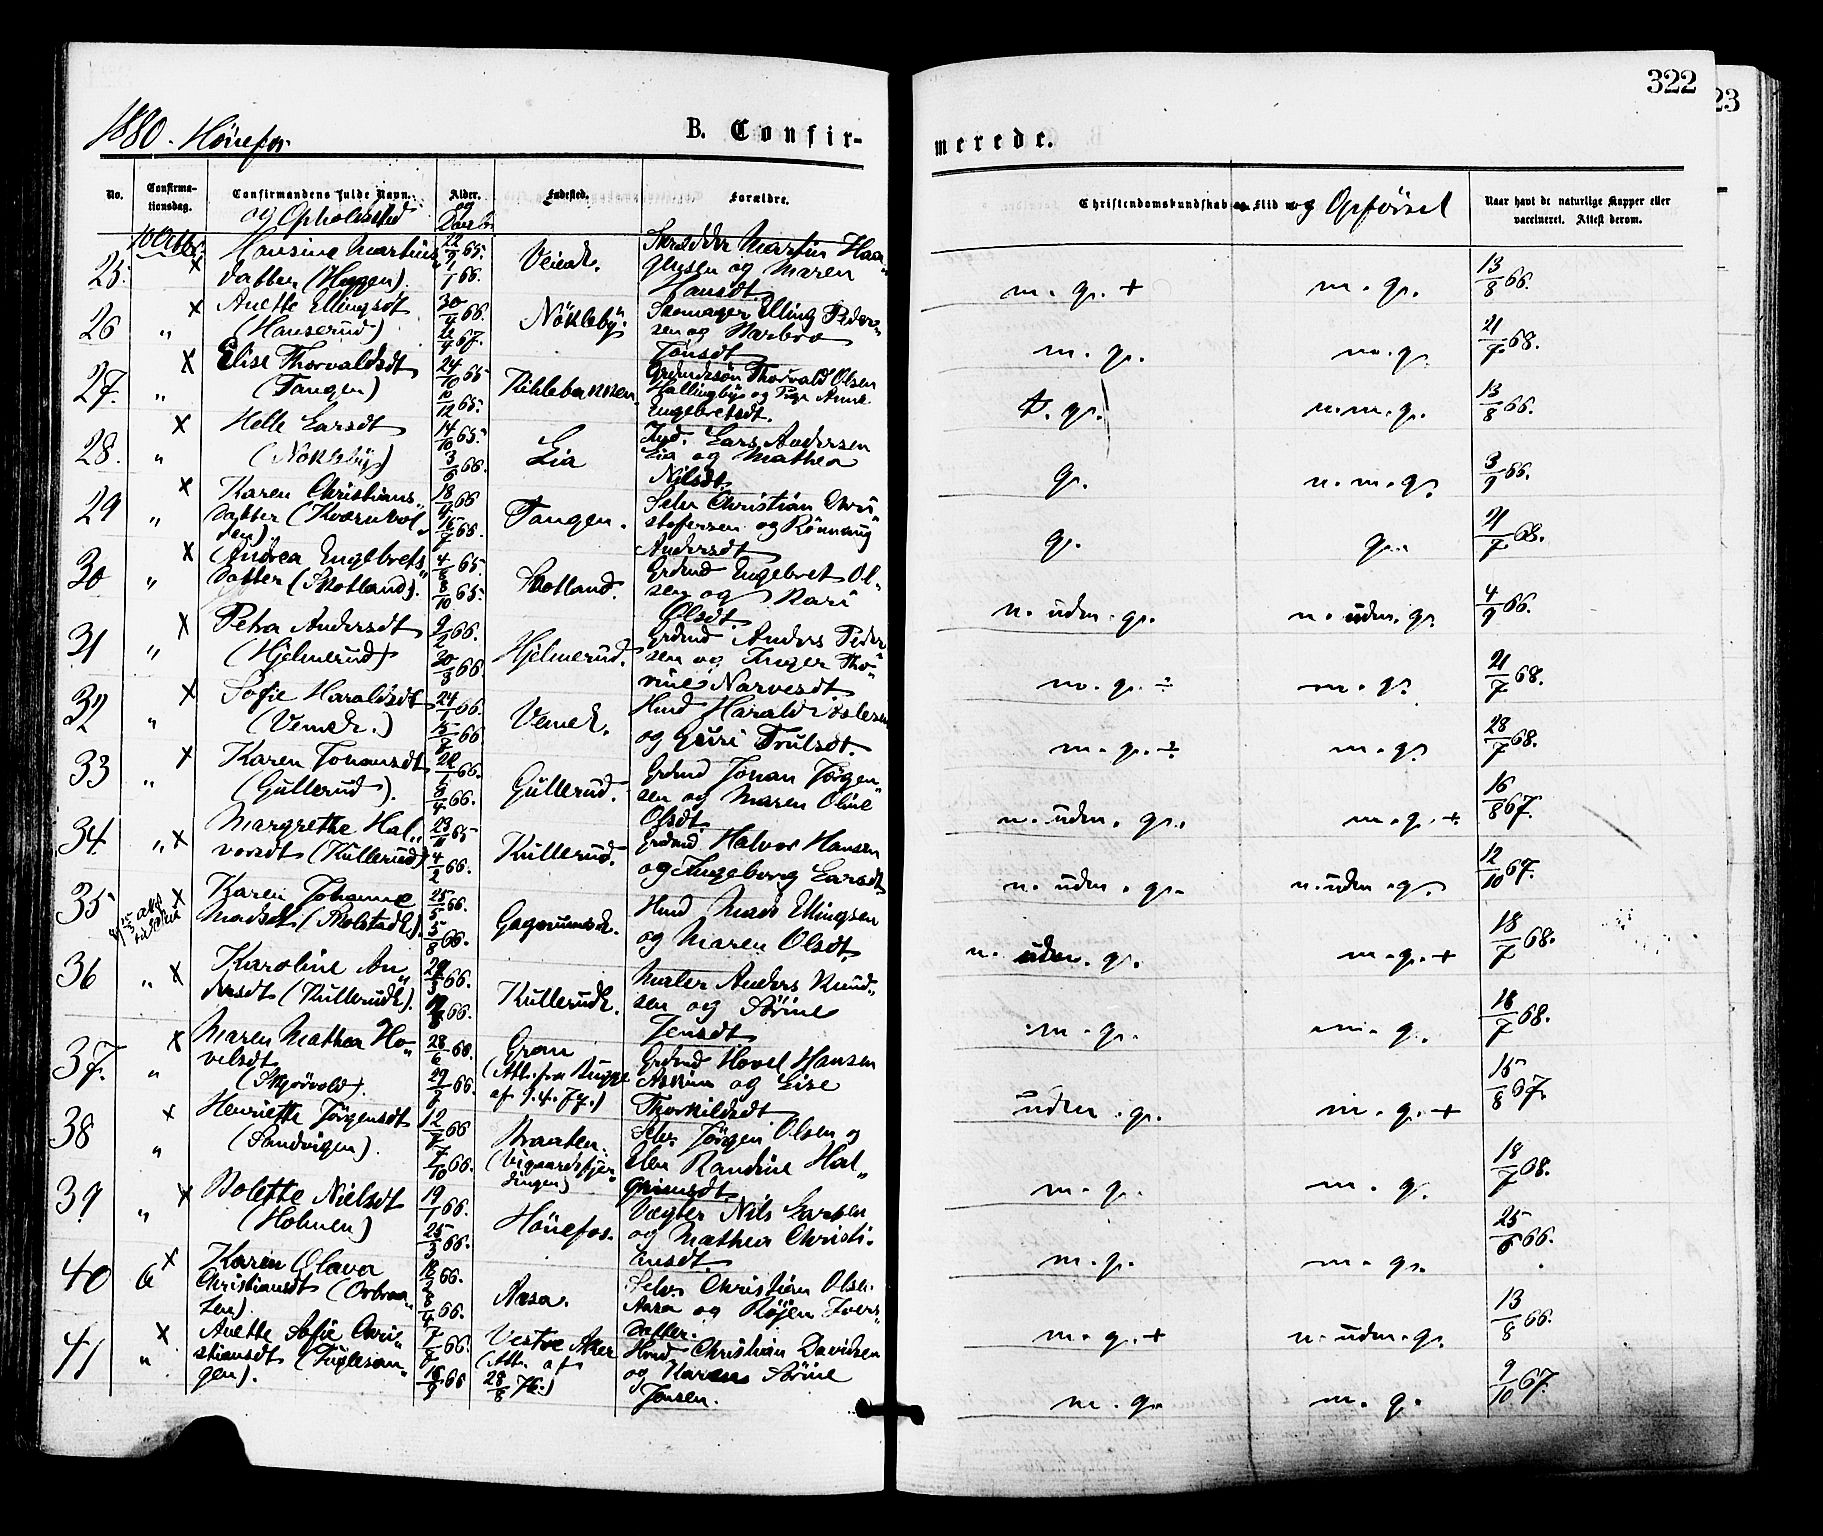 322
23
1880. Hönefos.
B. Confir-
merede.
No.
Confirma-
tionsdag.
Confirmandens fulde Navn.
og Opholdssted
Alder.
og
Daab
Fødested.
Forældre.
Christendomskundskab og Flid
og Opførsel
Naar havt de naturlige Kopper eller
vaccineret. Attest derom.
10 Octbr.
25. × Hansine Martins
datter (Heggen).
22/9 65.
1/1 66.
Veme.
Skrædder Martin Haa
gensen og Maren
Hansdt.
m. g. +
m. g.
13/8 66.
26 „ × Anette Ellingsdt
(Hanserud)
30/4 66.
22/4 67.
Nökleby.
Skomager Elling Peder„
sen og Barbro
Jönsdt
m. g.
m. g.
21/9 68.
27. „ × Elise Thorvaldsdt
(Tangen)
24/10 65
10/12 65.
Kihlebakken.
Grdmdssön Thorvald Olsen
Hallingby og Pige Anne
Engebretsdt.
t. g.
n. m. g.
13/8 66.
28. „ × Helle Larsdt
(Nökleby)
14/10 65
3/6 66.
Lia
Inds. Lars Andersen
Lia og Mathea
Nilsdt.
g.
n. m. g.
3/9 66.
29 „ × Karen Christians„
datter (Kværnvol„
den).
18/4 66
15/7 66.
Tangen.
Selv. Christian Chri„
stofersen og Rönnaug
Andersdt
g.
g.
21/7 68.
30 „ × Andrea Engebrets„
datter (Skotland).
4/8 65
8/10 65.
Skotland.
Grdmd Engebret Ol„
sen og Kari
Olsdt.
n. udm. g.
n. udm. g.
4/9 66.
31 „ × Petra Andersdt
(Hjelmerud)
9/2 66.
30/3 66
Hjelmerud.
Grdmd Anders Peder
sen og Inger Tho„
rine Narvesdt.
m. g. ÷
m. g.
21/7 68.
32 „ × Sofie Haraldsdt
(Veme.)
24/1 66.
15/7 66
Veme.
Hmd Harald
og Guri Trulsdt.
m. g. ÷
m. g.
28/7 68.
33 „ × Karen Johansdt
(Gullerud).
22/1 66.
8/4 66.
Gullerud.
Grdmd Johan Jörgen„
sen og Maren Oline
Olsdt
n. udm. g.
m. g. +
16/8 67.
34. „ × Margrethe Hal„
vorsdt (Kullerud)
23/11 65
4/2 66.
Kullerud.
Grdmd Halvor Hansen
og Ingeborg Larsdt
n. udm. g.
n. udm. g.
12/10 67.
35 × Karen Johanne
Madsdt (Rolstad).
25/5 66.
5/8 66.
Gagnumse.
Hmd Mads Ellingsen
og Maren Olsdt.
n. udm. g.
m. g. +
18/7 68.
36 „ × Karoline An„
dersdt (Kullerude).
29/5 66.
19/8 66.
Kullerude.
Maler Anders Knud„
sen og Sörine
Jensdt
m. g.
m. g.
18/7 68.
37. „ × Maren Mathea Ho„
velsdt
(Skjörvold).
28/6 66.
29/7 66.
Gran
(Att. fra Brugge
af 9.4.79.)
Grdmd Hovel Hansen
Askim og Lise
Thorkildsdt
udm. g.
m. g. +
15/8 67.
38 „ × Henriette Jörgensdt
(Sandvigen).
12/8 66
7/10 66.
Braaten.
(Vigaardsfjer„
dingen)
Selv. Jörgen Olsen og
Elen Randine Hal„
grimsdt
m. g.
m. g.
18/7 68.
39 „ × Bolette Nielsdt
(Holmen)
19/1 66.
25/3 66.
Hönefos.
Vægter Nils Larsen
og Mathea Christi„
ansdt.
m. g.
m. g.
25/6 66.
40 6 × Karen Olava
Christiansdt (Overaa„
ten).
18/2 66.
8/4 66.
Aasa.
Selv. Christian Olsen
Aasa og Röjen Ivers„
datter.
m. g. +
n. udm. g.
13/8 66.
41 „ × Anette Sofie Chri„
stiansdt (Fuglesan„
gen).
7/8 66
16/9 66
Vestre Aker
(Att. af
28/8 76.)
Hmd Christian Davidsen
og Karen Sörine
Jonsen.
m. g.
m. g.
9/10 67.